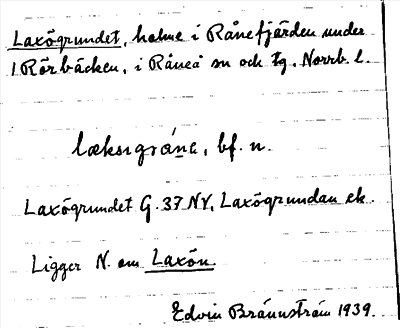 Laxögrundet, holme i Rånefjärden under
1 Rörbäcken, i Råneå sn och tg. Norrb. l.
lœksıgrɷ́ne, bf. n.
Laxögrundet G. 37 NV, Laxögrundan ek.
Ligger N. om Laxön.
Edvin Brännström 1939.